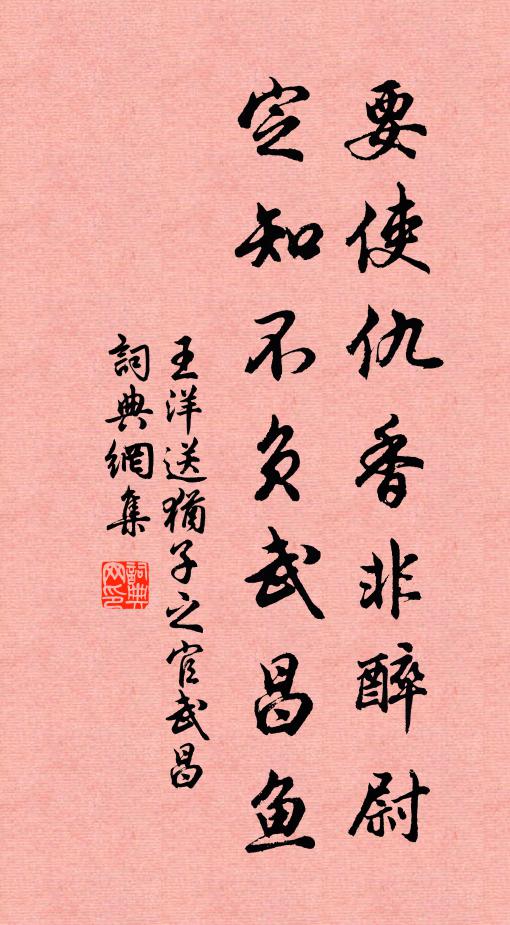 要使仇香非醉尉
定知不負武昌魚
王洋送猶子之官武昌
詞典網集
詞典網印